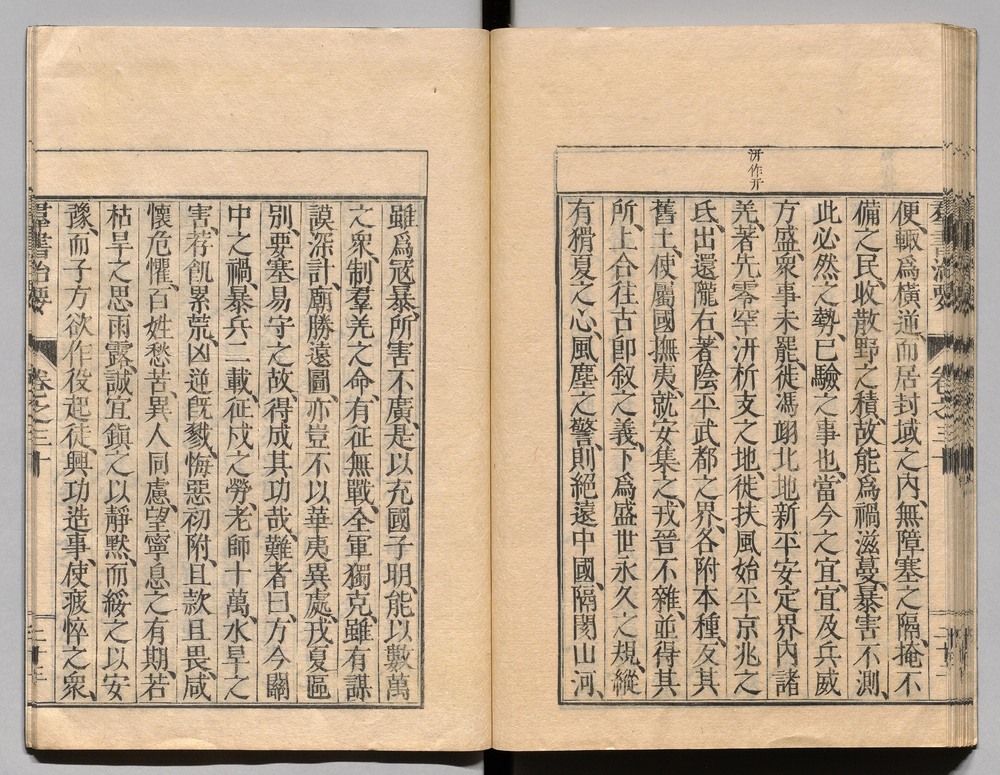 汧作汧
便輙爲橫逆而居封域之內無障塞之隔掩不
備之民收散野之積故能爲禍滋蔓暴害不測
此必然之勢已驗之事也當今之宜宜及兵威
方盛衆事未罷徙馮翊北地新平安定界內諸
羌著先零罕汧析支之地徙扶風始平京兆之
氐出還隴右著陰平武都之界各附本種反其
舊土使屬國撫夷就安集之戎晉不雜並得其
所上合往古卽叙之義下爲盛世永久之規縱
有猾夏之心風塵之警則絕遠中國隔閡山河
雖爲冦暴所害不廣是以充國子明能以數萬
之衆制羣羌之命有征無戰全軍獨克雖有謀
謨深計廟勝遠圖亦豈不以華夷異處戎夏區
別要塞易守之故得成其功哉難者曰方今關
中之禍暴兵二載征戍之勞老師十萬水旱之
害荐飢累荒凶逆旣戮悔惡初附且款且畏咸
懷危懼百姓愁苦異人同慮望寧息之有期若
枯旱之思雨露誠宜鎭之以靜默而綏之以安
豫而子方欲作役起徒興功造事使疲悴之衆
羣書治要 卷之三十